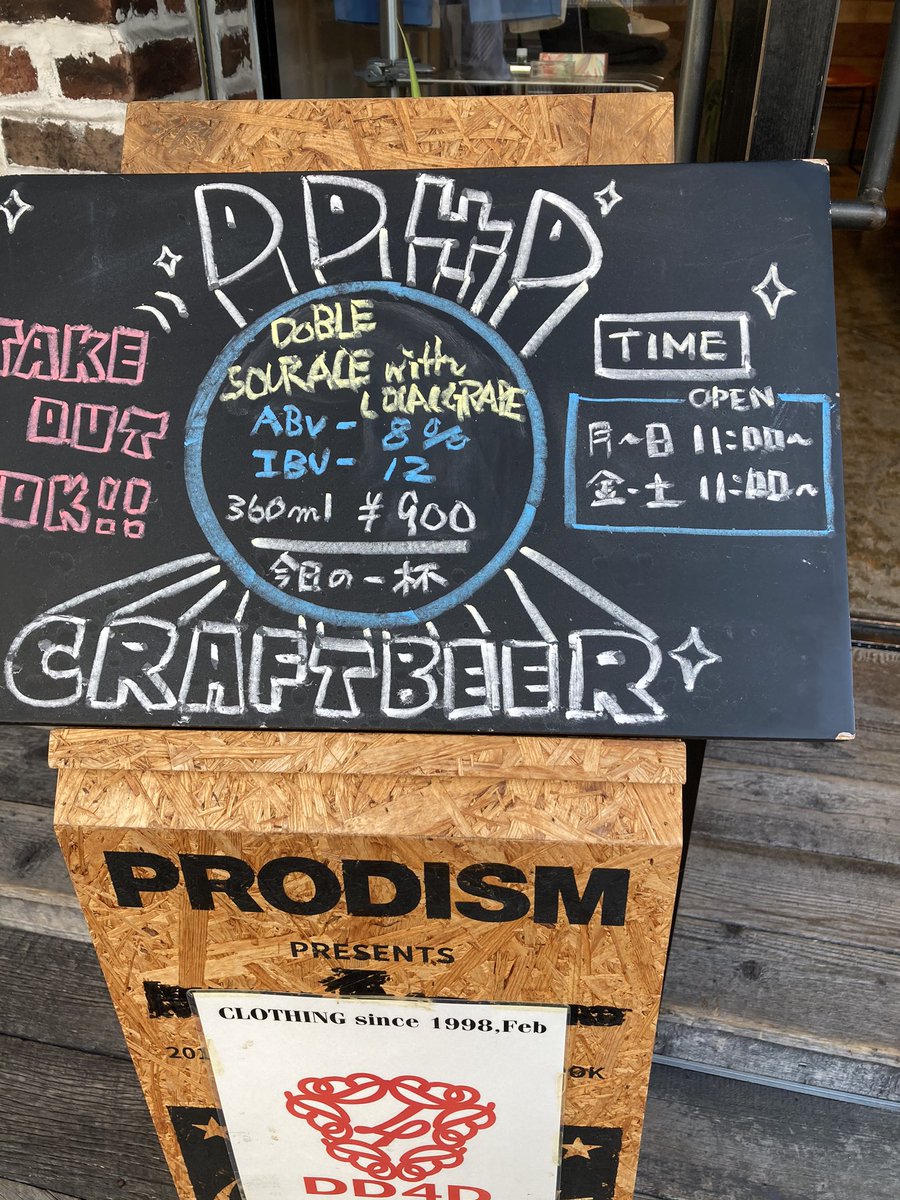 DD4D
TAKE
OUT
OK!!
DOBLE
SOURACE with
LOCALGRAPE
ABV - 8%
IBV - 12
360ml ¥900
今日の一杯
TIME
OPEN
月~日 11:00~
金・土 11:00~
CRAFTBEER
PRODISM
PRESENTS
CLOTHING since 1998,Feb
201
OK
DD4D